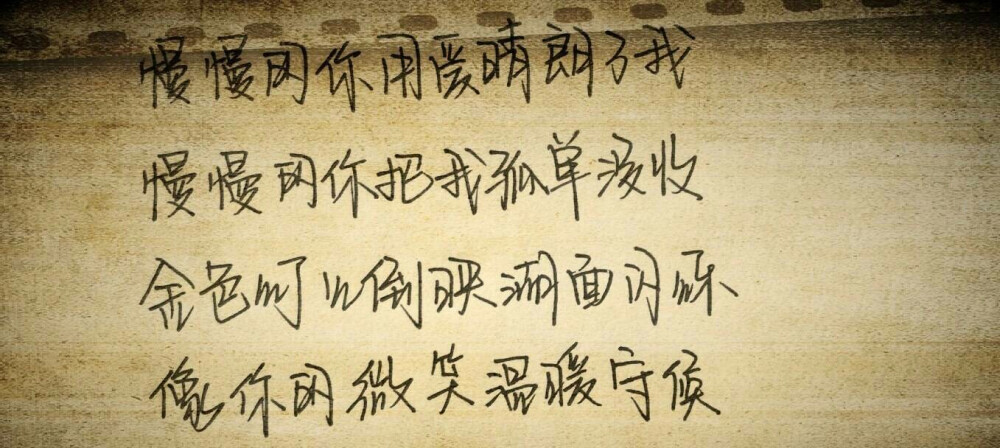 慢慢的你用爱晴朗了我
慢慢的你把我孤单没收
金色灯火倒映湖面闪烁
像你的微笑温暖守候